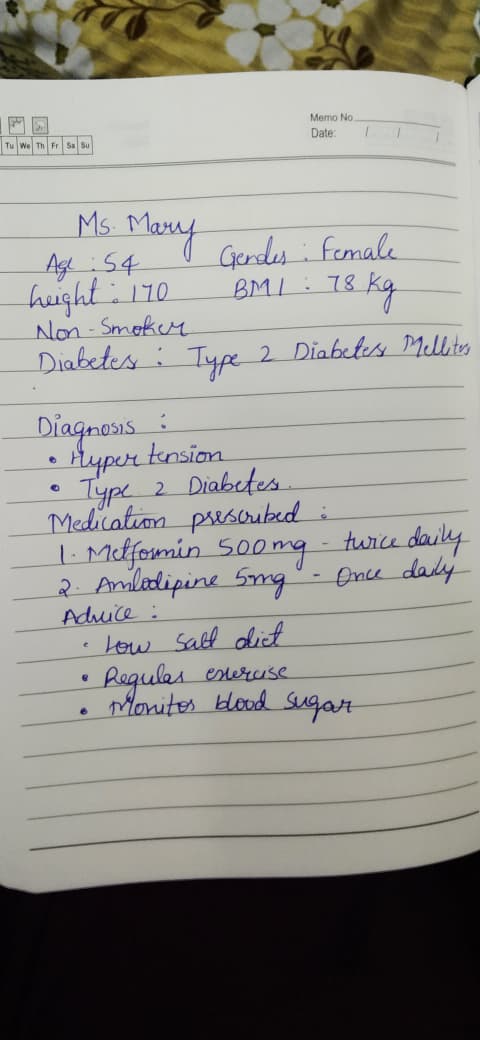 Memo No
Date: / / /
Tu We Th Fr Sa Su
Ms. Mary
Age : 54 Gender : Female
height : 170 BMI : 78 Kg
Non-Smoker
Diabetes : Type 2 Diabetes Mellitus
Diagnosis :
• Hypertension
• Type 2 Diabetes.
Medication prescribed :
1. Metformin 500mg - twice daily
2. Amlodipine 5mg - Once daily
Advice :
• Low Salt diet
• Regular exercise
• Monitor blood sugar